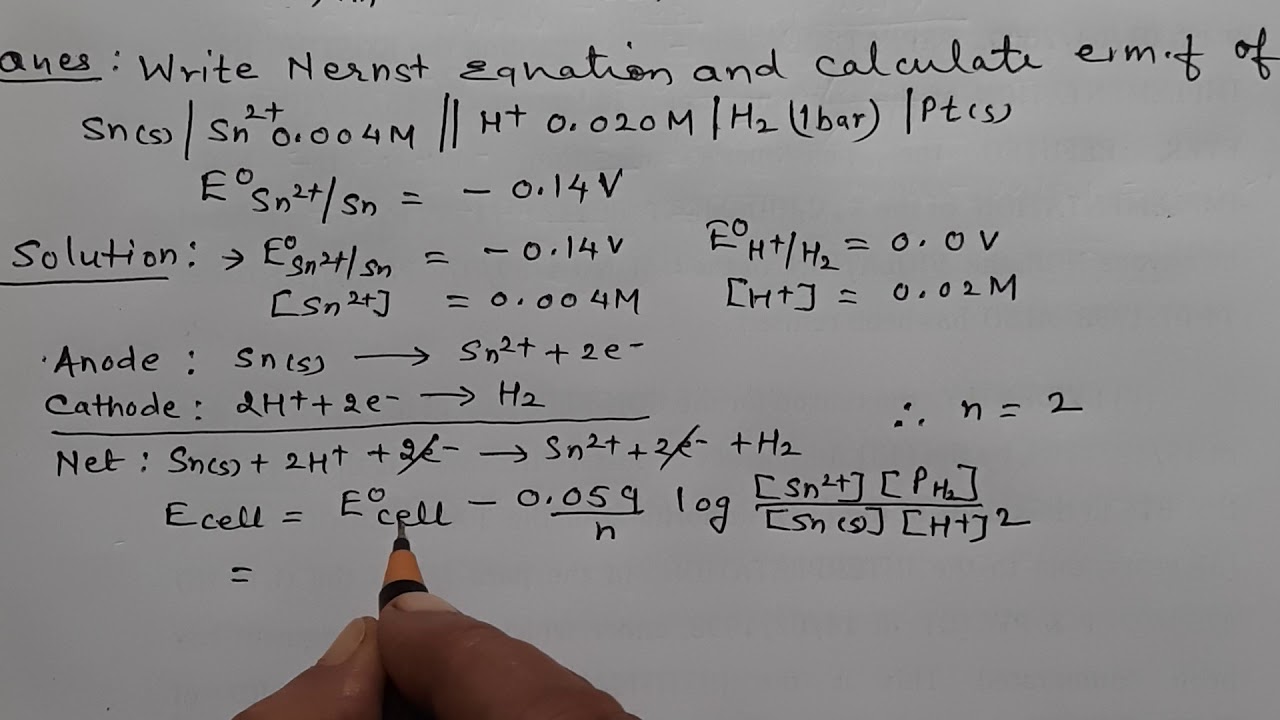 Ques: Write Nernst Equation and calculate e.m.f of
Sn(s) | Sn²⁺ 0.004M || H⁺ 0.020M | H₂ (1bar) | Pt(s)
E⁰Sn²⁺/Sn = - 0.14V
Solution: → E⁰Sn²⁺/Sn = - 0.14V E⁰H⁺/H₂ = 0.0V
[Sn²⁺] = 0.004M [H⁺] = 0.02M
Anode : Sn(s) ⟶ Sn²⁺ + 2e⁻
Cathode : 2H⁺ + 2e⁻ ⟶ H₂ ∴ n = 2
Net : Sn(s) + 2H⁺ + 2e⁻ ⟶ Sn²⁺ + 2e⁻ + H₂
Ecell = E⁰cell - 0.059/n log [Sn²⁺] [PH₂]/[Sn(s)] [H⁺]²
=